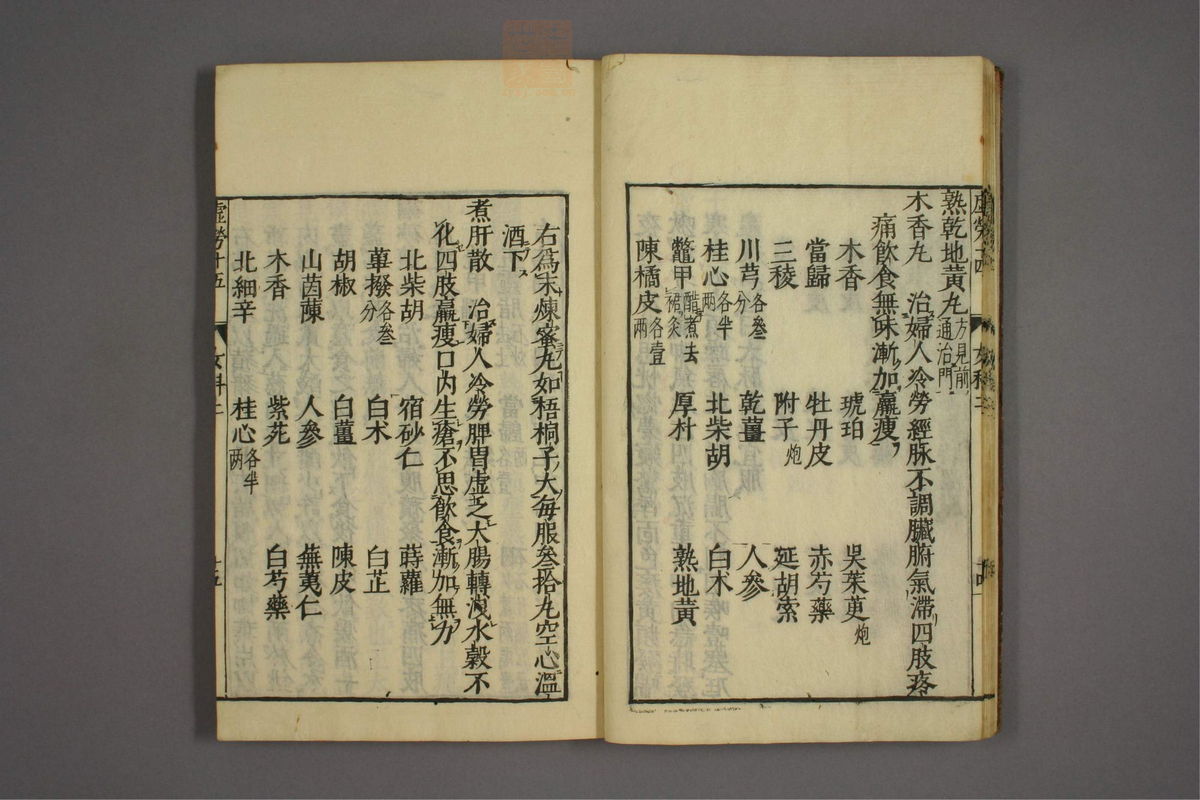 熟乾地黄丸方見前通治門
木香丸　治婦人冷勞經脉不調臟腑氣滯四肢疼
痛飲食無味漸加羸瘦
木香　琥珀　吳茱萸炮
當歸　牡丹皮　赤芍藥
三稜　附子炮　延胡索
川芎各叄分　乾薑　人參
桂心各半两　北柴胡　白术
鼈甲醋煮去裙炙　厚朴　熟地黄
陳橘皮各壹两
右爲末煉蜜丸如梧桐子大每服叄拾丸空心溫
酒下
煮肝散　治婦人冷勞脾胃虛乏大腸轉洩水穀不
化四肢羸瘦口内生瘡不思飲食漸加無力
北柴胡　宿砂仁　蒔蘿
蓽撥各叄分　白术　白芷
胡椒　白薑　陳皮
山茵蔯　人參　蕪荑仁
木香　紫菀　白芍藥
北細辛　桂心各半两
虛勞十五　女科二　十五